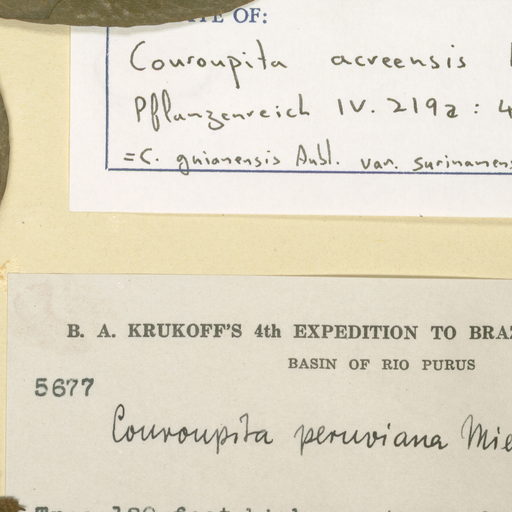 OF:
Couroupita acreensis
Pflanzenreich IV. 219a: 4
=C. guianensis Aubl. var. surinamens
B. A. KRUKOFF'S 4th EXPEDITION TO BRA
BASIN OF RIO PURUS
5677
Couroupita peruviana Mie